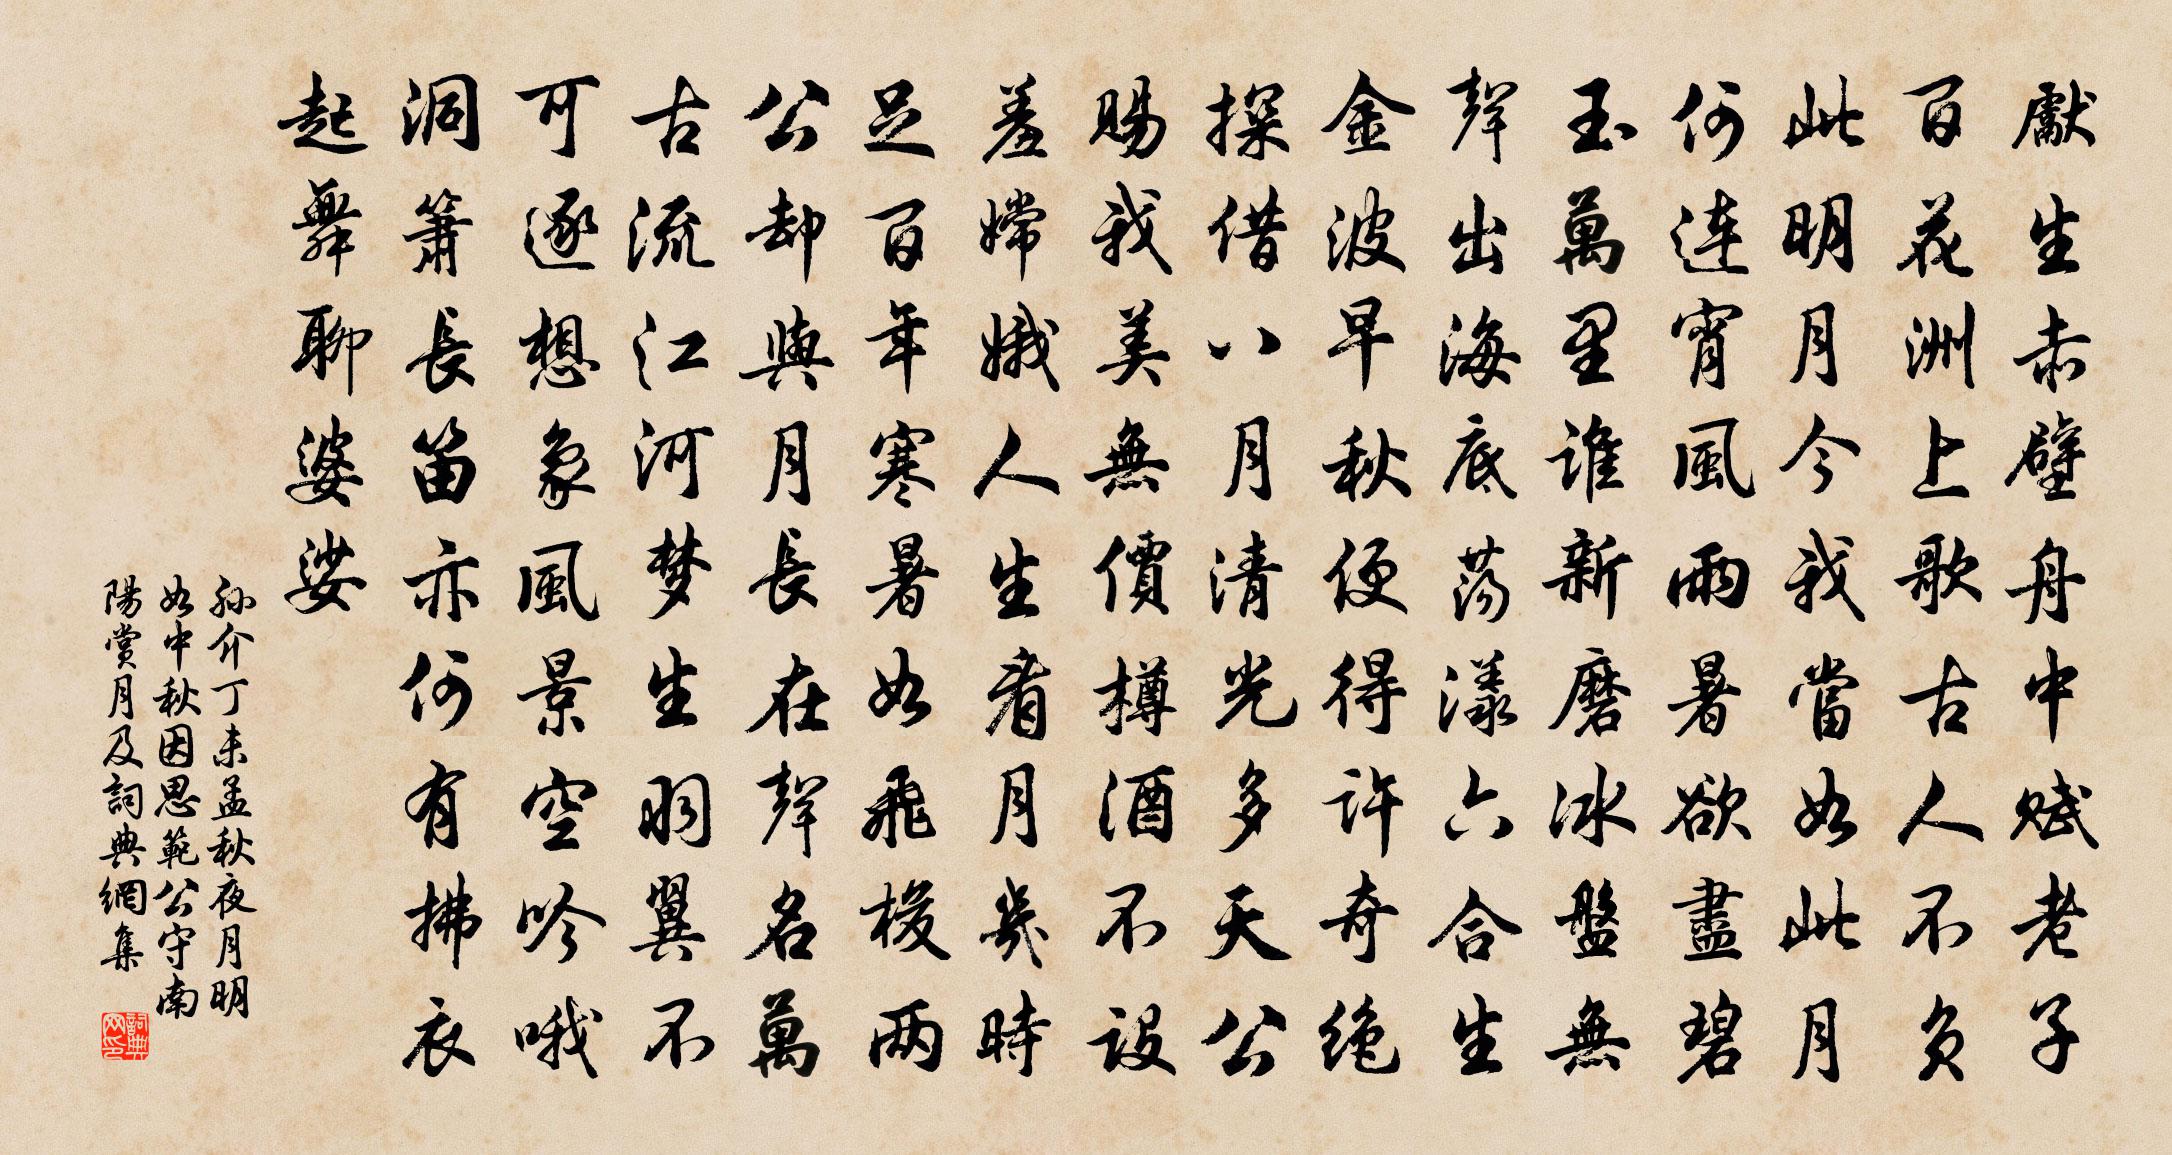 獻生赤壁舟中賦老子
百花洲上歌古人不負
此明月今我當如此月
何連宵風雨暑欲盡碧
玉萬里誰新磨冰盤無
聲出海底蕩漾六合生
金波早秋便得許奇绝
探借八月清光多天公
賜我美無價樽酒不設
羞嫦娥人生看月幾時
足百年寒暑如飛梭两
公却與月長在聲名萬
古流江河梦生羽翼不
可逐想象風景空吟哦
洞簫長笛亦何有拂衣
起舞聊婆娑
孙介丁未孟秋夜月明
如中秋因思範公守南
陽賞月及詞典網集
詞典网印